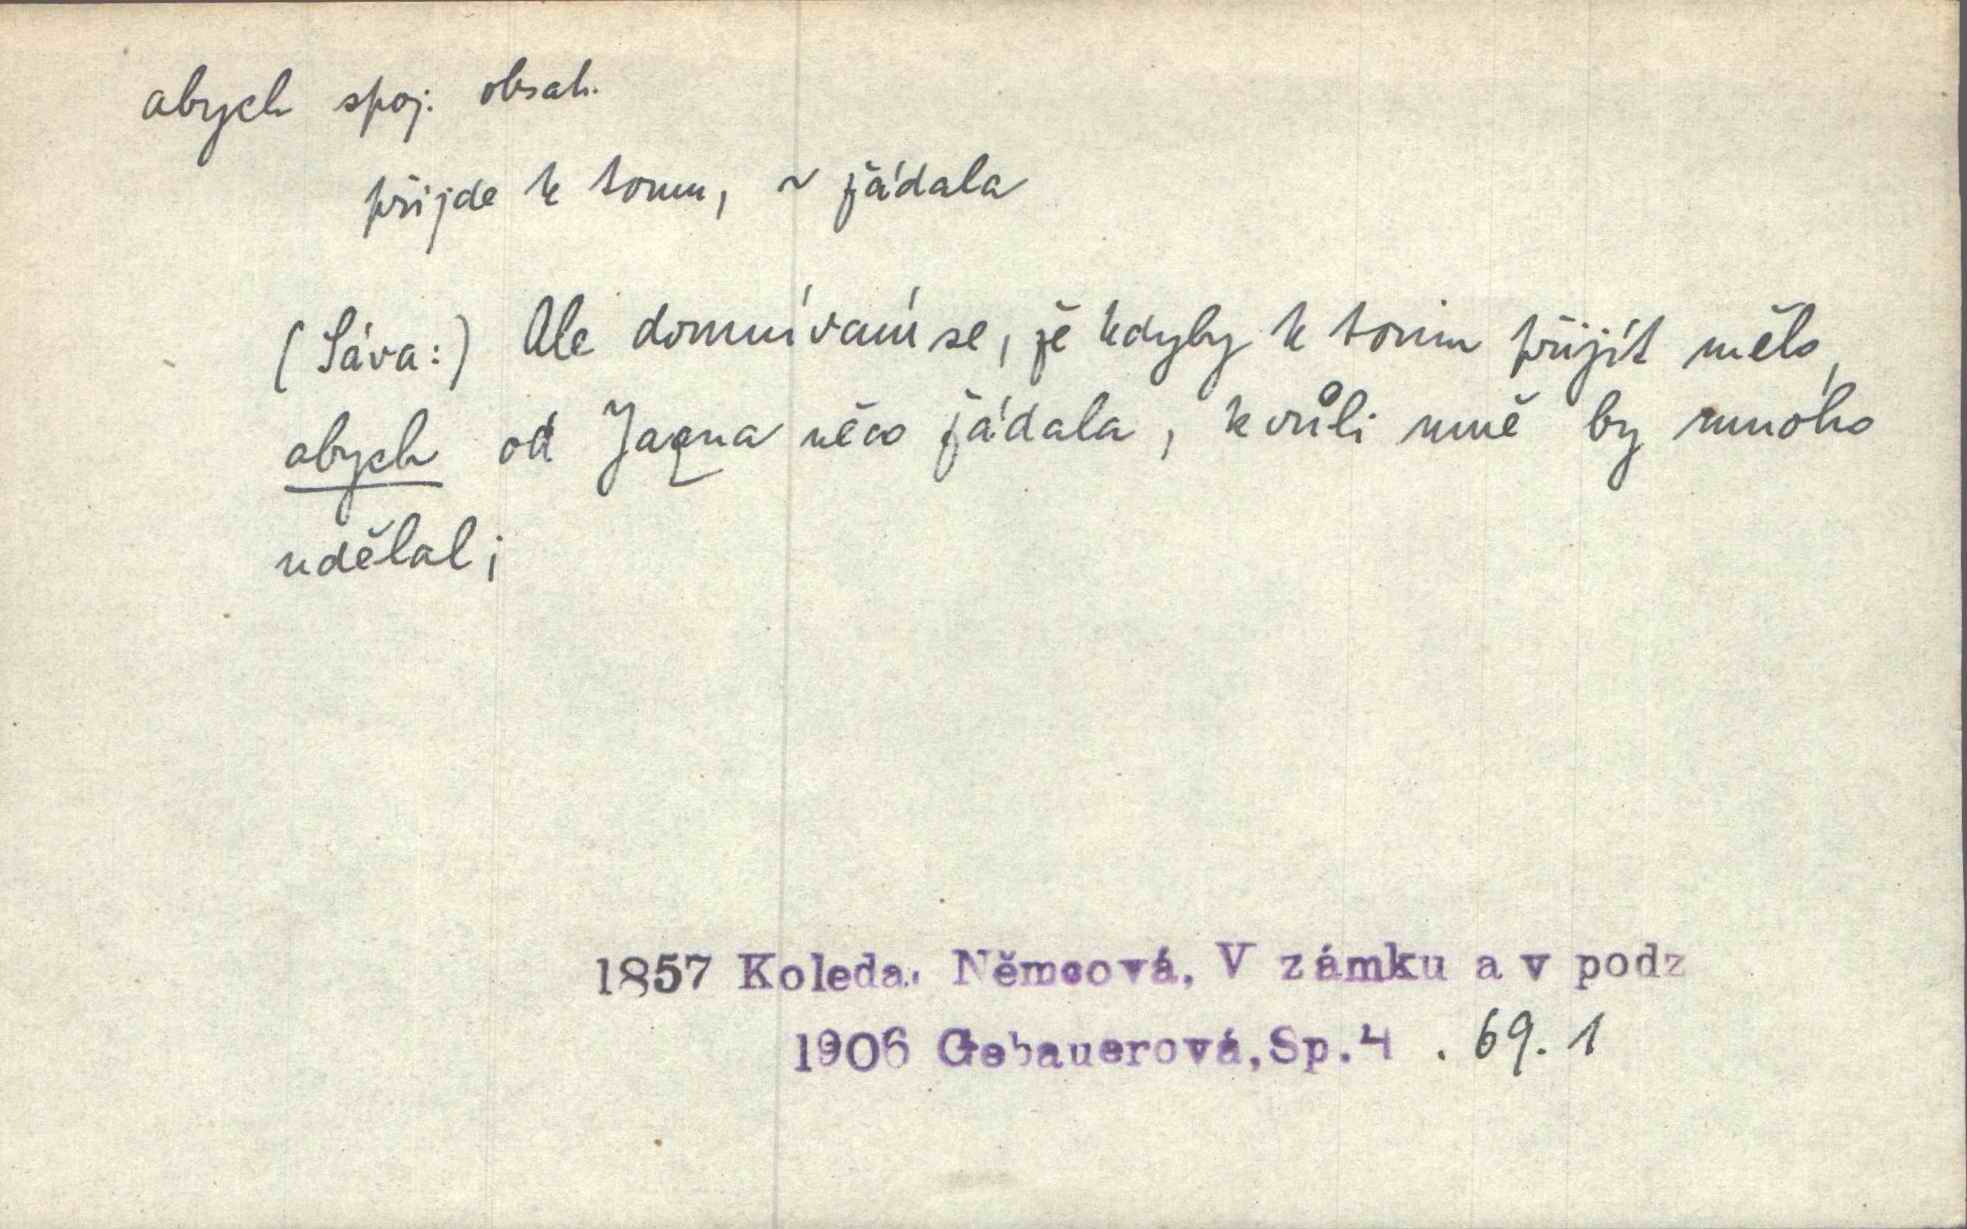 abych spoj. obsah.
přijde k tomu, ~ žádala
(Sáva:) Ale domnívám se, že kdyby k tomu přijít mělo,
abych od Jazna něco žádala, k vůli mně by mnoho
udělal;
1857 Koleda. Němcová, V zámku a v podz
1906 Gebauerová, Sp.4 . 69. 1